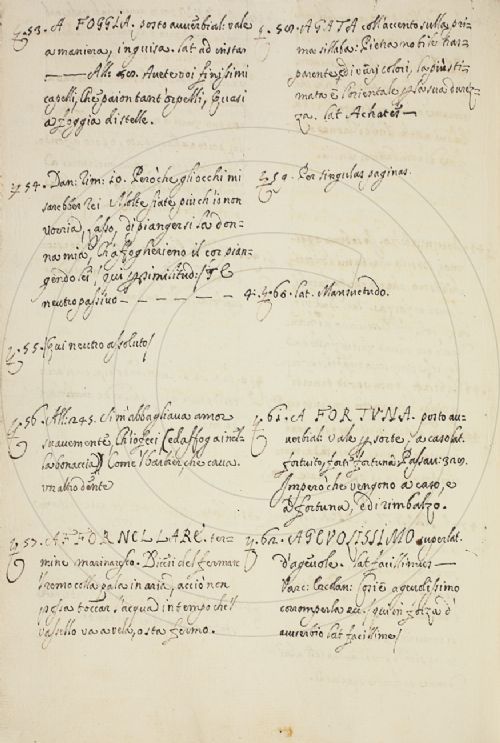 53. A FOGGIA. posto avverbial: vale
a maniera, in guisa. lat. ad instar
Avete voi finissimi
capelli, che paion tant'orpelli, quasi
a foggia di stelle.
54. Dan: rim: 20. Però che gli occhi mi
sarebber rei Molte fiate più ch'io non
vorria, lasso, di pianger sì la don-
na mia, Ch'affogherieno il cor pian-
gendo lei
neutro passivo
55. qui neutro assoluto
56. All: 245. Si m'abbagliava amor
suavemente, Ch'io feci (ed affoga in el-
la bonaccia) Come 'l barbier che cava
un altro dente
57. AFFORNELLARE. ter-
mine marinaresco. Dicesi del fermare
'l remo colla pala in aria, acciò non
possa toccar l'acqua in tempo che 'l
vassello va a vela, o sta fermo.
58. AGATA coll'accento sulla pri-
ma sillaba: Pietra nobile tras-
parente, di varj colori, la più sti-
mata è l'orientale p la sua durez-
za. lat. Achates
59. Per singulas paginas.
4. 60. lat. Mansuetudo.
61. A FORTUNA. posto av-
verbial: vale p sorte, a caso lat.
fortuito, forte fortuna Passav: 329.
Imperò che vengono a caso, e
a fortuna, e di rimbalzo.
62. AGEVOLISSIMO superlat.
d'agevole. lat. facillimus
Cosi è agevolissimo
qui in forza d'
avverbio lat. facillime